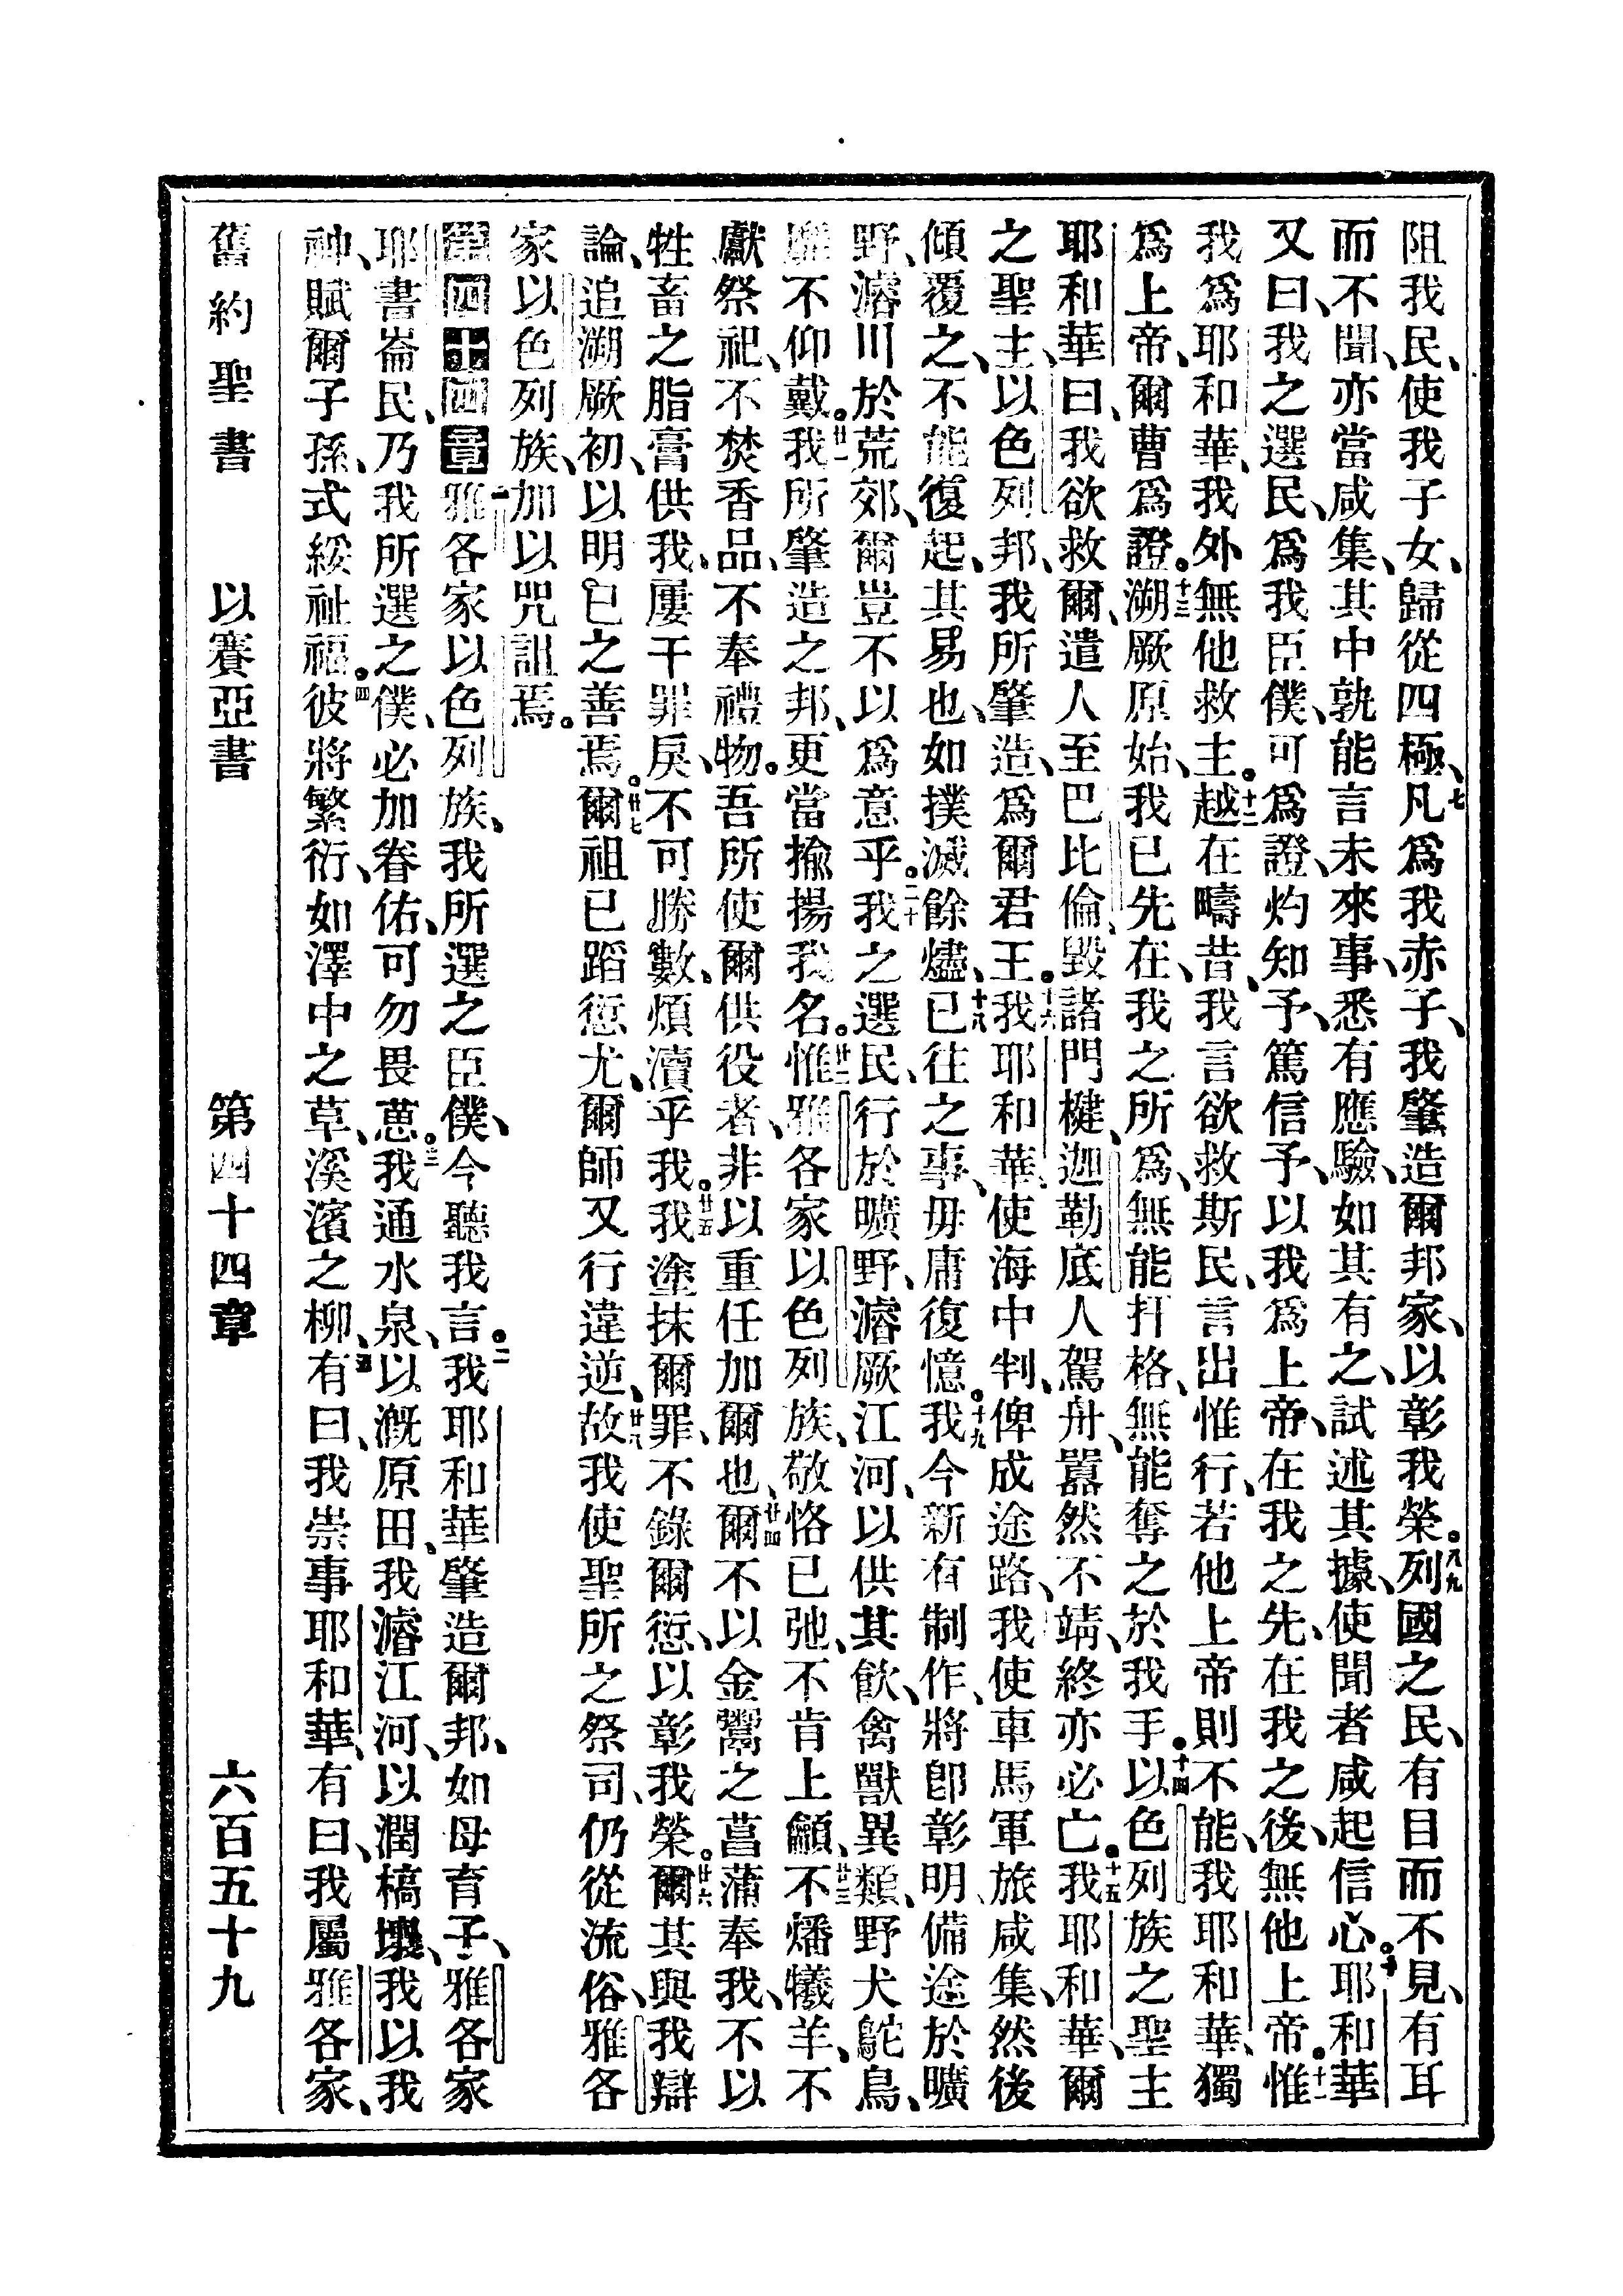 阻我民、使我子女、歸從四極、七凡爲我赤子、我肇造爾邦家、以彰我榮。八九列國之民、有目而不見、有耳
而不聞、亦當咸集、其中孰能言未來事、悉有應驗、如其有之、試述其據、使聞者咸起信心。十耶和華
又曰、我之選民、爲我臣僕、可爲證、灼知予、篤信予、以我爲上帝、在我之先、在我之後、無他上帝。十一惟
我爲耶和華、我外無他救主。十二越在疇昔、我言欲救斯民、言出惟行、若他上帝則不能、我耶和華、獨
爲上帝、爾曹爲證。十三溯厥原始、我已先在、我之所爲、無能扞格、無能奪之於我手。十四以色列族之聖主
耶和華曰、我欲救爾、遣人至巴比倫、毀諸門楗、迦勒底人駕舟、囂然不靖、終亦必亡。十五我耶和華、爾
之聖主、以色列邦、我所肇造、爲爾君王。十六我耶和華、使海中判、俾成途路、我使車馬軍旅咸集、然後
傾覆之、不能復起、其易也、如撲滅餘燼、十八已往之事、毋庸復憶。十九我今新有制作、將卽彰明、備途於曠
野、濬川於荒郊、爾豈不以爲意乎。二十我之選民、行於曠野、濬厥江河、以供其飮、禽獸異類、野犬鴕鳥、
不仰戴。廿一我所肇造之邦、更當揄揚我名。廿二惟雅各家以色列族、敬恪已弛、不肯上籲、廿三不燔犧羊、不
獻祭祀、不焚香品、不奉禮物。吾所使爾供役者、非以重任加爾也、廿四爾不以金鬻之菖蒲奉我、不以
牲畜之脂膏供我、屢干罪戾、不可勝數、煩瀆乎我。廿五我塗抹爾罪、不錄爾愆、以彰我榮。廿六爾其與我辯
論、追溯厥初、以明已之善焉。廿七爾祖已蹈愆尤、爾師又行違逆、廿八故我使聖所之祭司、仍從流俗、雅各
家以色列族、加以咒詛焉。
第四十四章一雅各家以色列族、我所選之臣僕、今聽我言。二我耶和華肇造爾邦、如母育子、雅各家
耶書崙民、乃我所選之僕、必加眷佑、可勿畏葸。三我通水泉、以漑原田、我濬江河、以潤槁壤、我以我
神、賦爾子孫、式綏祉福。四彼將繁衍、如澤中之草、溪濱之柳、五有曰、我崇事耶和華、有曰、我屬雅各家、
舊約聖書 以賽亞書 第四十四章 六百五十九